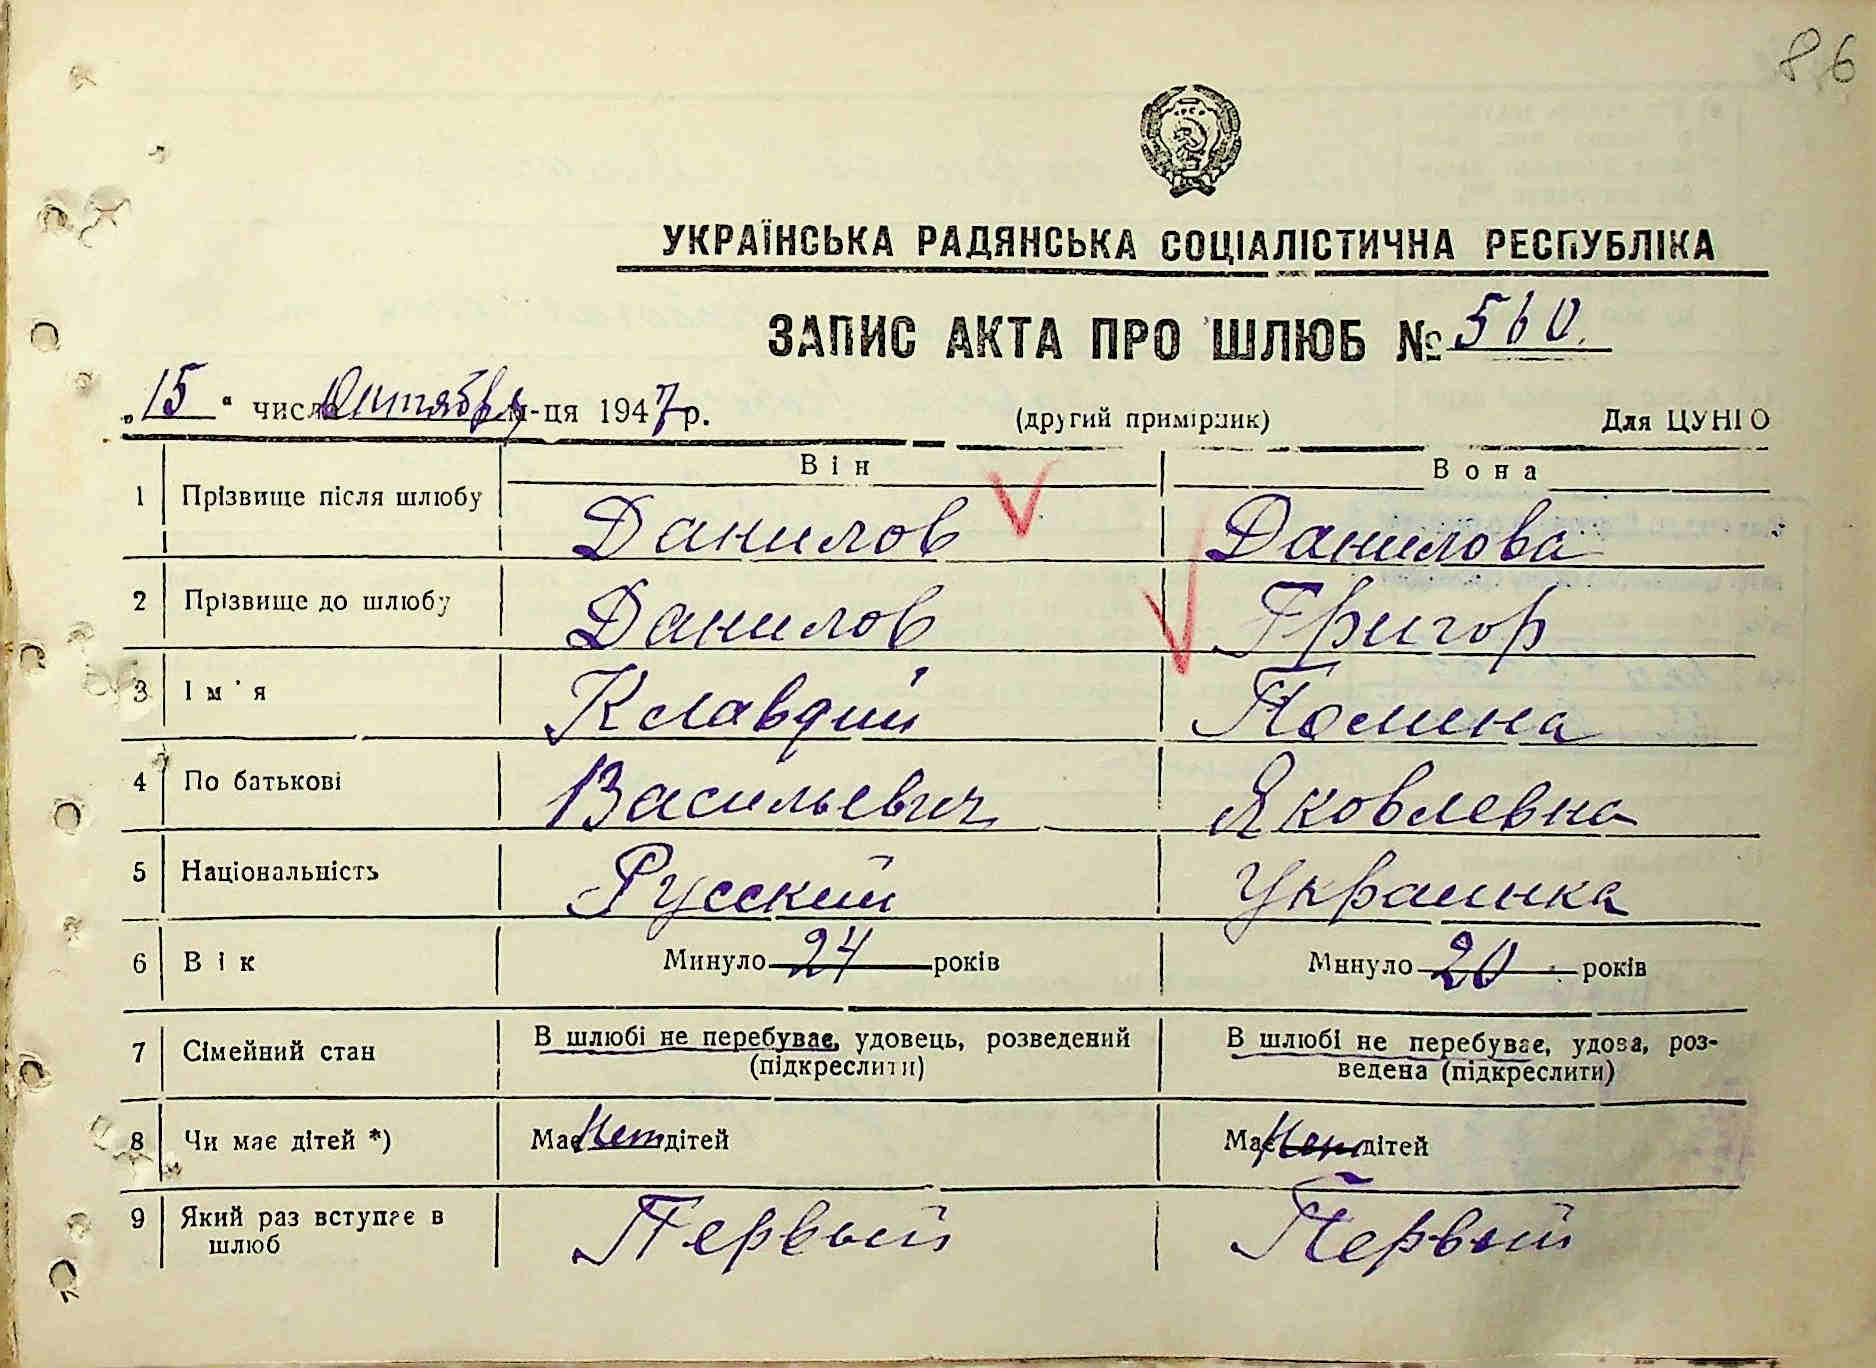 86
УКРАЇНСЬКА РАДЯНСЬКА СОЦІАЛІСТИЧНА РЕСПУБЛІКА
ЗАПИС АКТА ПРО ШЛЮБ № 560.
„15“ числа Октября м-ця 1947 р. (другий примірник) Для ЦУНГО
Він Вона
1 Прізвище після шлюбу Данилов Данилова
2 Прізвище до шлюбу Данилов Григор
3 Ім'я Клавдий Полина
4 По батькові Васильевич Яковлевна
5 Національність Русский Украинка
6 Вік Минуло 24 років Минуло 20 років
7 Сімейний стан В шлюбі не перебуває, удовець, розведений В шлюбі не перебуває, удова, роз-
(підкреслити) ведена (підкреслити)
8 Чи має дітей *) Має Нет дітей Має Нет дітей
9 Який раз вступає в Первый Первый
шлюб